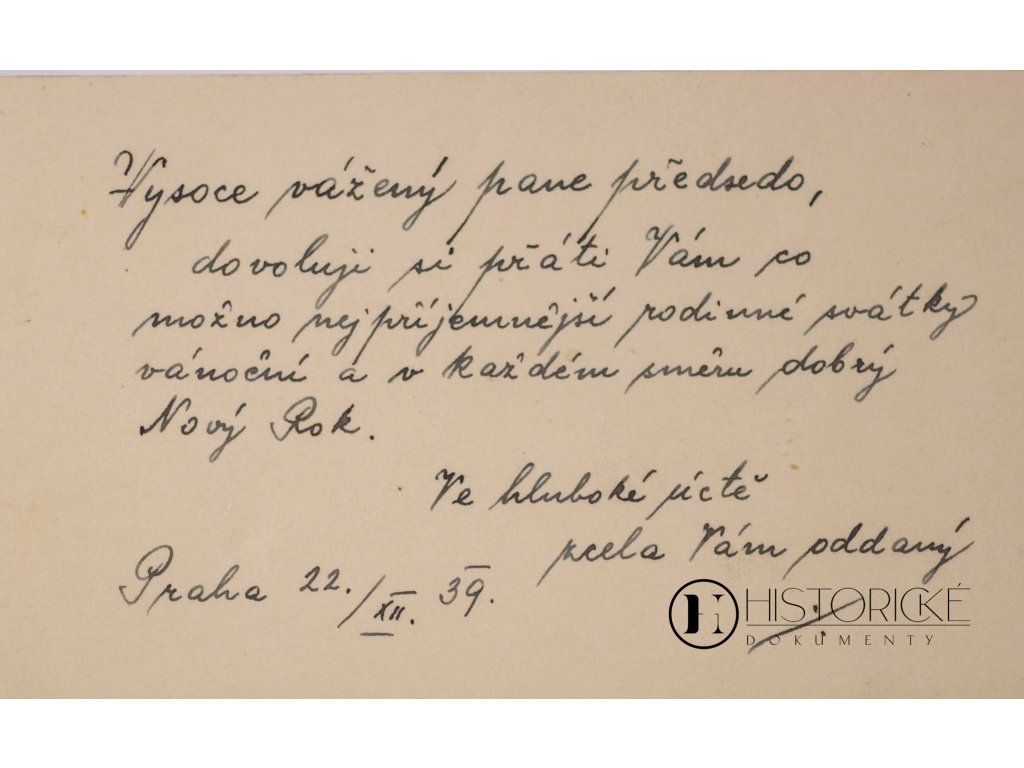 Vysoce vážený pane předsedo,
dovoluji si přáti Vám co
možno nejpříjemnější rodinné svátky
vánoční a v každém směru dobrý
Nový Rok.
Ve hluboké úctě
zcela Vám oddaný
Praha 22./XII. 39.
HISTORICKÉ
DOKUMENTY